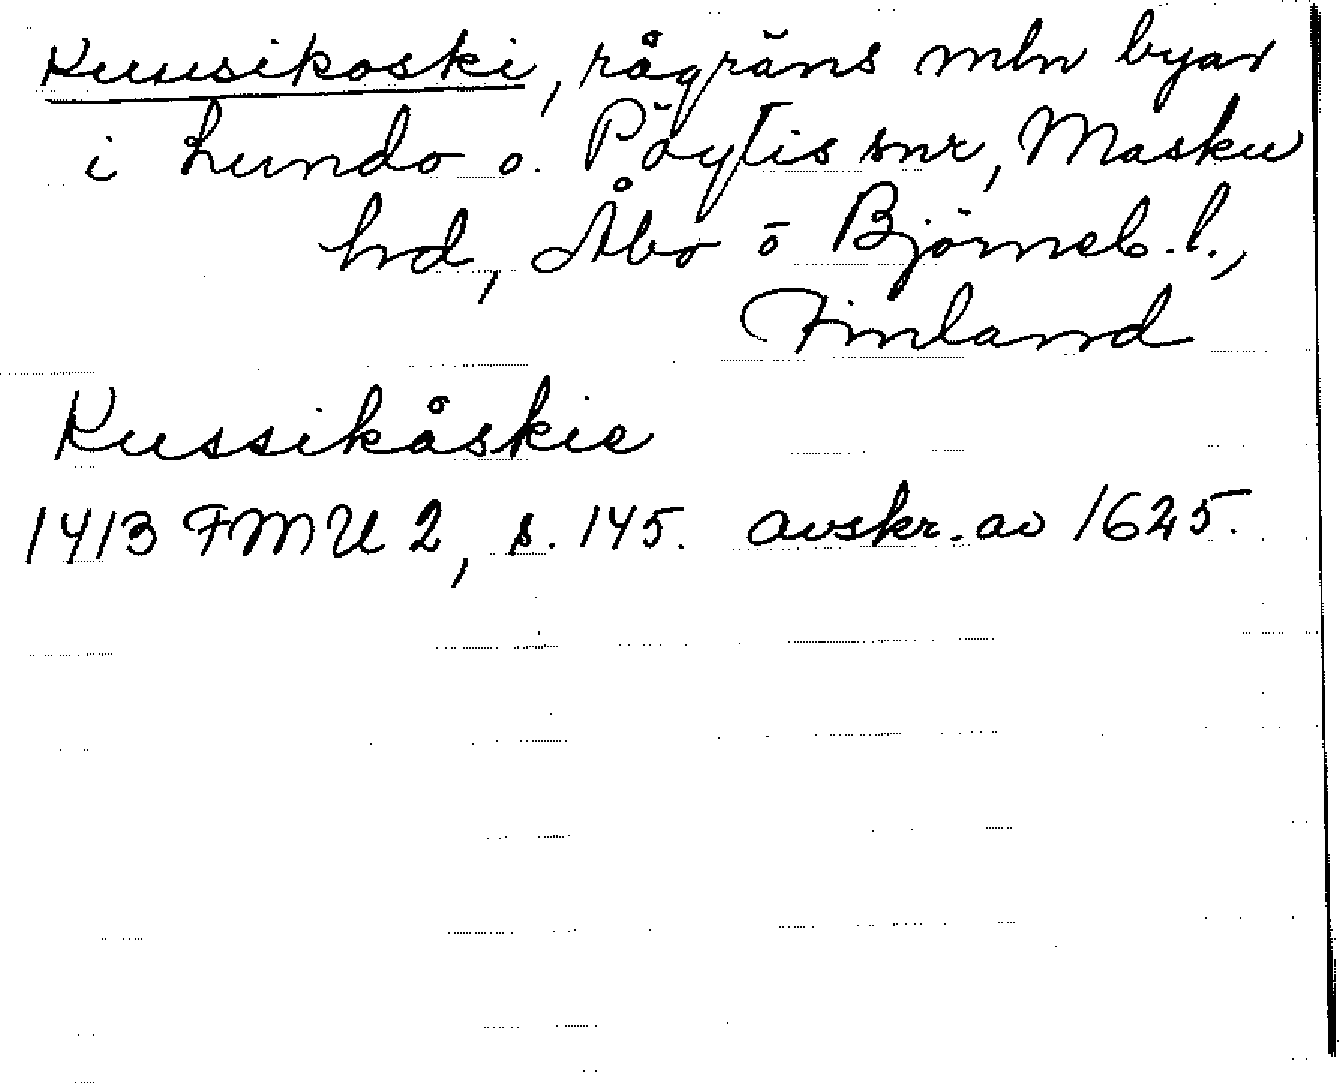 Kuusikoski, rågräns mln byar
i Lundo o. Pöytis snr, Masku
hd, Åbo o Björneb. l.,
Finland
Kussikåskie
1413 FMU 2, s. 145. avskr. av 1625.